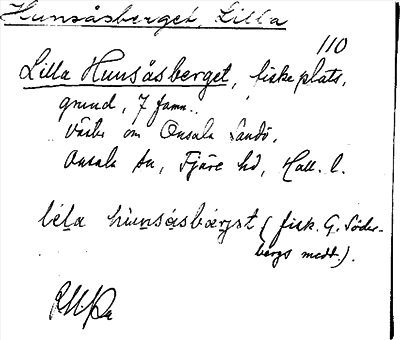 Hunsåsberget, Lilla
110
Lilla Hunsåsberget, fiskeplats,
grund, 7 famn.
väster om Onsala Sandö,
Onsala sn, Fjäre hd, Hall. l.
lɛ́la hùnsåsbärgst (fisk. G. Söder-
bergs medd.).